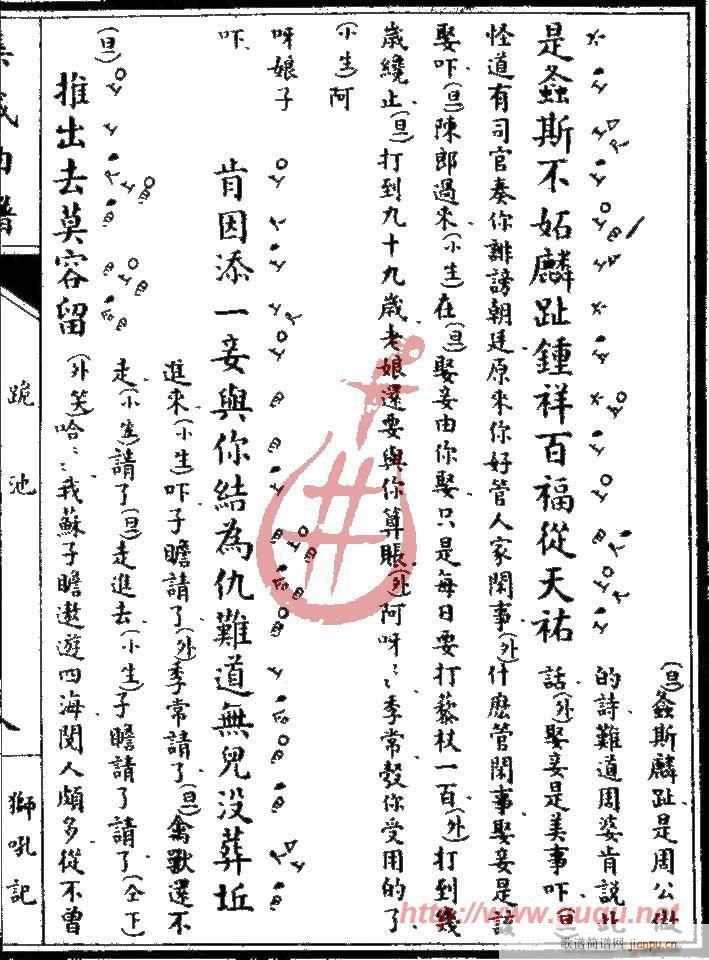 (旦)螽斯麟趾是周公做
的詩難道周婆肯說此
是螽斯不妬麟趾鍾祥百福從天祐
話(外)娶妾是美事吓(旦)
怪道有司官奏你誹謗朝廷原來你好管人家閑事(外)什麽管閑事娶妾是該
娶吓(旦)陳郎過來(小生)在(旦)娶妾由你娶只是每日要打藜杖一百(外)打到幾
歲纔止(旦)打到九十九歲老娘還要與你算賬(外)阿呀〻季常彀你受用的了
(小生)阿
呀娘子
吓
肯因添一妾與你結為仇難道無兒没葬坵
進來(小生)吓子瞻請了(外)季常請了(旦)禽獸還不
走(小生)請了(旦)走進去(小生)子瞻請了請了(仝下)
(旦)推出去莫容留
(外笑)哈〻〻我蘇子瞻遨遊四海閱人頗多從不曾
集成曲譜
跪池
獅吼記
http://www.guqu.net
歌谱简谱网 jianpu.cn